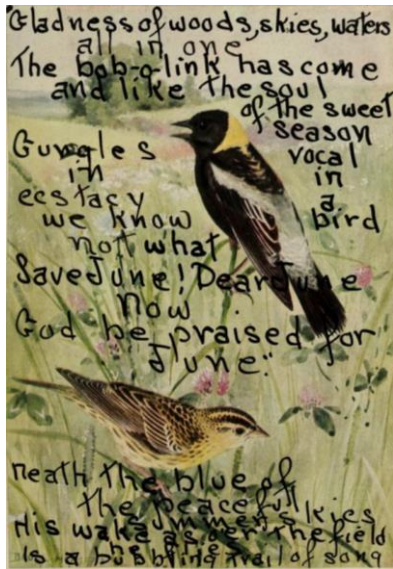 Gladness of woods, skies, waters
all in one
The bob-o-link has come
and like the soul
of the sweet
season
vocal
in
a
bird
Gurgles
in
ecstacy
we know
not what
Save June! Dear June
now
God be praised for
June."
neath the blue of
the peaceful
summer skies
His wake as
over the field
he flies
Is a bubbling trail of song